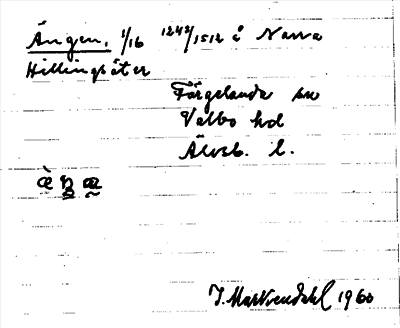 Ängen, 1/16 1242/1512 å Norra
Hillingsäter
Färgelanda sn
Valbo hd
Älvsb. l.
1960